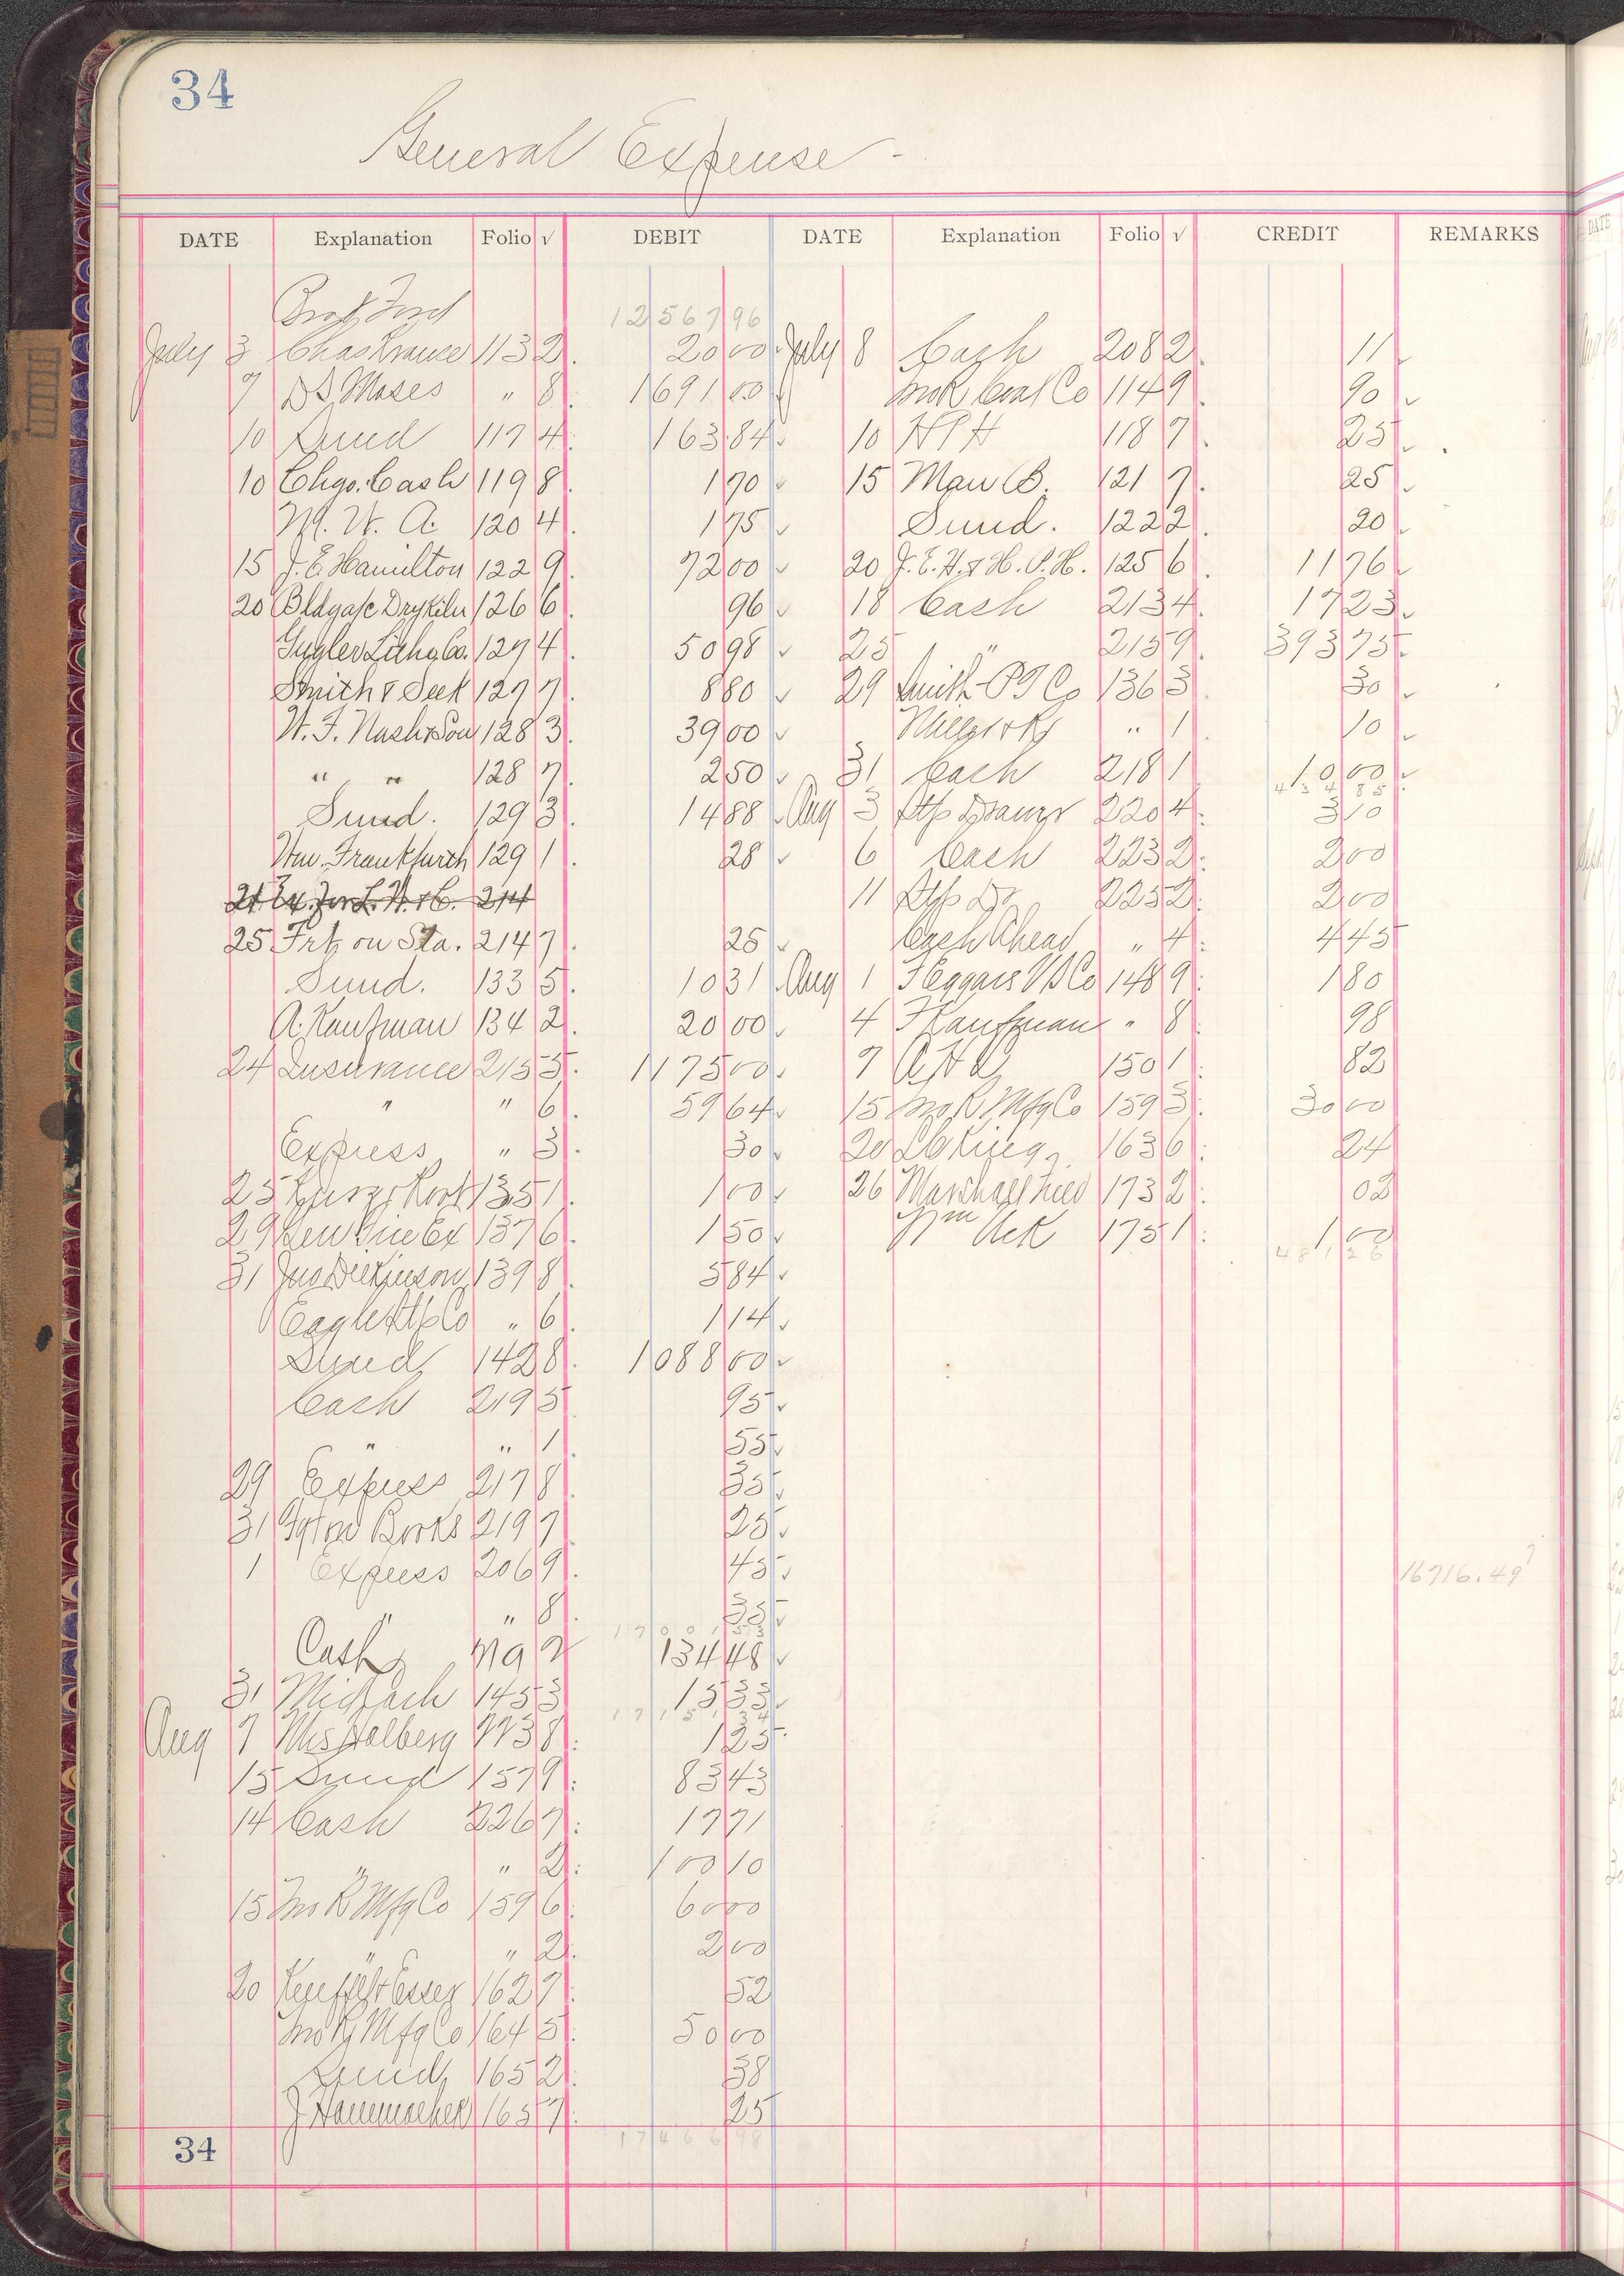 34
General Expense -
DATE Explanation Folio √ DEBIT DATE Explanation Folio √ CREDIT REMARKS
Brot Ford 12567 96
July 3 Chas Krause 113 2 20 00 July 8 Cash 208 2 11
7 D S Moses " 8 1691 00 Jno R Coal Co 114 9 90
10 Sund 117 4 163 84 10 H P H 118 7 25
10 Chgo. Cash 119 8 1 70 15 Man B. 121 7 25
M. W. A. 120 4 1 75 Sund. 122 2 20
15 J. E. Hamilton 122 9 72 00 20 J. E. H. & H. P. H. 125 6 11 76
20 Bldg a/c Drykiln 126 6 96 18 Cash 213 4 17 23
Gugler Litho Co. 127 4 50 98 25 " 215 9 393 75
Smith & Seek 127 7 8 80 29 Smith P T Co 136 3 30
W. F. Nash & Son 128 3 39 00 " 1 10
" " 128 7 2 50 31 Cash 218 1 10 00
434 85
Sund. 129 3 14 88 Aug 3 220 4 3 10
Wm. Frankfurth 129 1 28 6 Cash 223 2 2 00
21 Ex. for L. H. & C. 214 11 225 2 2 00
25 Frt on Sta. 214 7 25 Cash Ahead " 4 4 45
Sund. 133 5 10 31 Aug 1 148 9 1 80
A. Kaufman 134 2 20 00 4 Kaufman " 8 98
24 Insurance 215 5 1175 00 7 150 1 82
" " 6 59 64 15 Jno R Mfg Co 159 3 30 00
Express " 3 30 20 163 6 24
25 135 1 1 00 26 Marshall Field 173 2 02
29 137 6 1 50 Wm 175 1 1 00
481 26
31 Jno Dickinson 139 8 5 84
Eagle Co " 6 1 14
Sund 142 8 1088 00
Cash 219 5 95
" " 1 55
29 Express 217 8 35
31 Books 219 7 25
1 Express 206 9 45
16716.49?
" " 8 35
17001 53
Cash 2 134 48
31 145 3 15 33
17151 34
Aug 7 Mrs Halberg 223 8 1 25
15 Sund 157 9 83 43
14 Cash 226 7 17 71
" " 2 100 10
15 Jno R Mfg Co 159 6 60 00
" " 2 2 00
20 Keuffel & Esser 162 7 52
Jno R Mfg Co 164 5 50 00
Sund 165 2 38
J Hammacher 165 7 25
17466 98
34